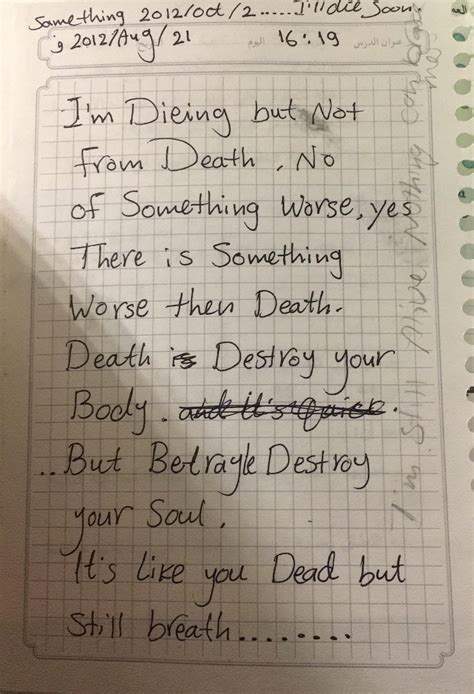 Something 2012/Oct/2..... I'll die Soon.
و 2012/Aug/21 اليوم 16:19 عنوان الدرس
I'm Dieing but Not
from Death, No
of Something Worse, yes
There is Something
Worse then Death.
Death is Destroy your
Body. and it's Quick.
..But Betrayle Destroy
your Soul.
It's Like you Dead but
Still breath........
I'm Still Alive Nothing can break
me